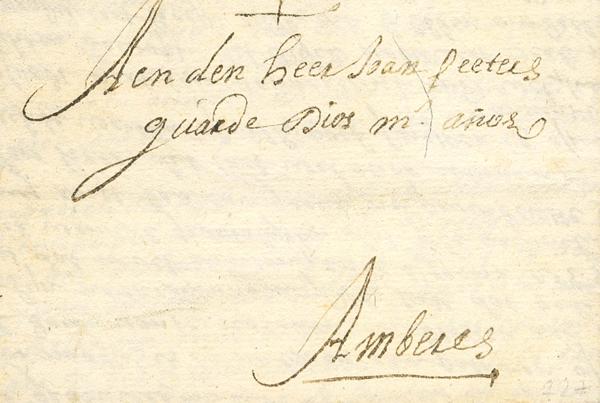 Aen den heer Joan Peeters
guarde Dios m.s años
Amberes
727